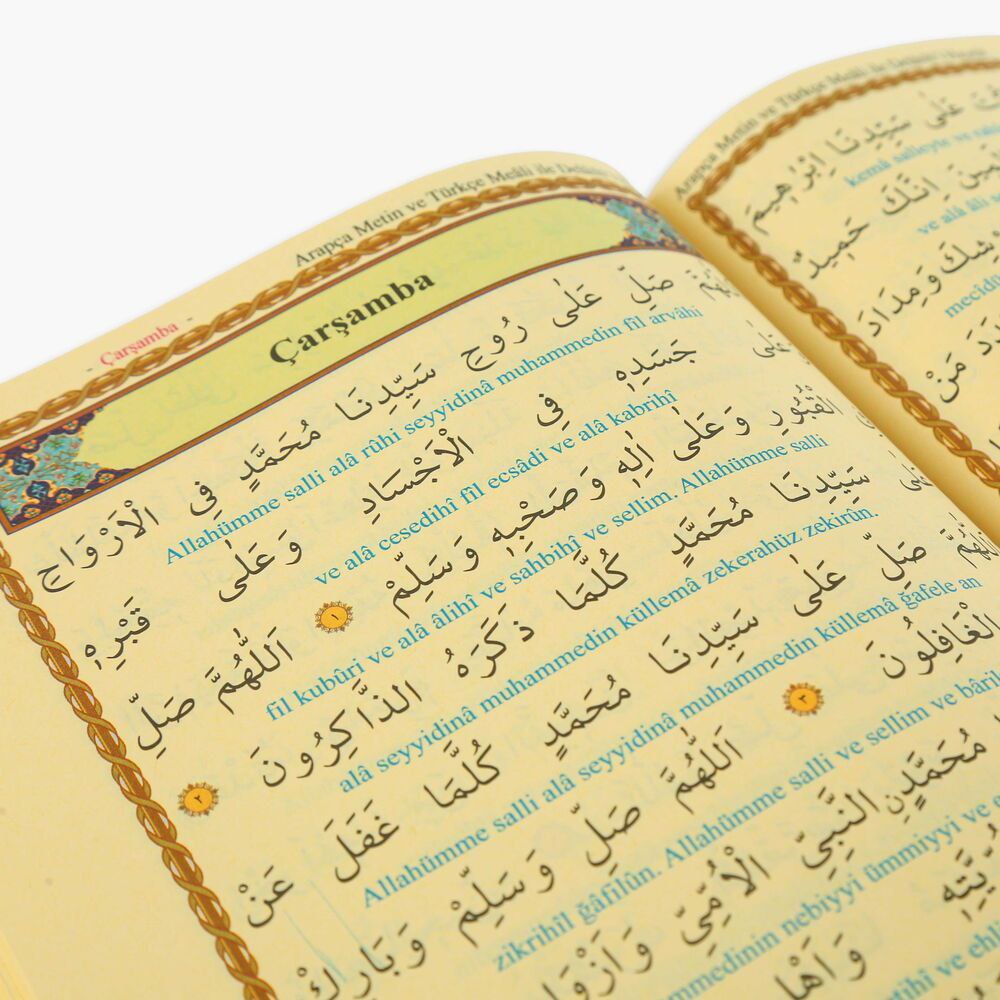 Arapça Metin ve Türkçe Meâli ile
- Çarşamba -
Çarşamba
صَلِّ عَلٰى رُوحِ سَيِّدِنَا مُحَمَّدٍ فِي الْاَرْوَاحِ
Allahümme salli alâ rûhi seyyidinâ muhammedin fil arvâhi
وَعَلٰى جَسَدِهٖ فِي الْاَجْسَادِ وَعَلٰى قَبْرِهٖ
ve alâ cesedihî fil ecsâdi ve alâ kabrihî
الْقُبُورِ وَعَلٰى اٰلِهٖ وَصَحْبِهٖ وَسَلِّمْ ١ اَللّٰهُمَّ صَلِّ
fil kubûri ve alâ âlihî ve sahbihî ve sellim. Allahümme salli
عَلٰى سَيِّدِنَا مُحَمَّدٍ كُلَّمَا ذَكَرَهُ الذَّاكِرُونَ ٢
alâ seyyidinâ muhammedin küllemâ zekerahüz zekirûn.
صَلِّ عَلٰى سَيِّدِنَا مُحَمَّدٍ كُلَّمَا غَفَلَ عَنْ
Allahümme salli alâ seyyidinâ muhammedin küllemâ ğafele an
الْغَافِلُونَ ٣ اَللّٰهُمَّ صَلِّ وَسَلِّمْ وَبَارِكْ
zikrihil ğâfilûn. Allahümme salli ve sellim ve
مُحَمَّدٍنِ النَّبِيِّ الْاُمِّيِّ
nebiyyi ümmiyyi ve
وَاَهْلِ
ve
Arapça Metin ve Türkçe Meâli ile
عَلٰى سَيِّدِنَا اِبْرٰهِيمَ
kemâ salleyte ve
اِنَّكَ حَمِيدٌ
ve alâ âli
وَمِدَادَ
مَنْ